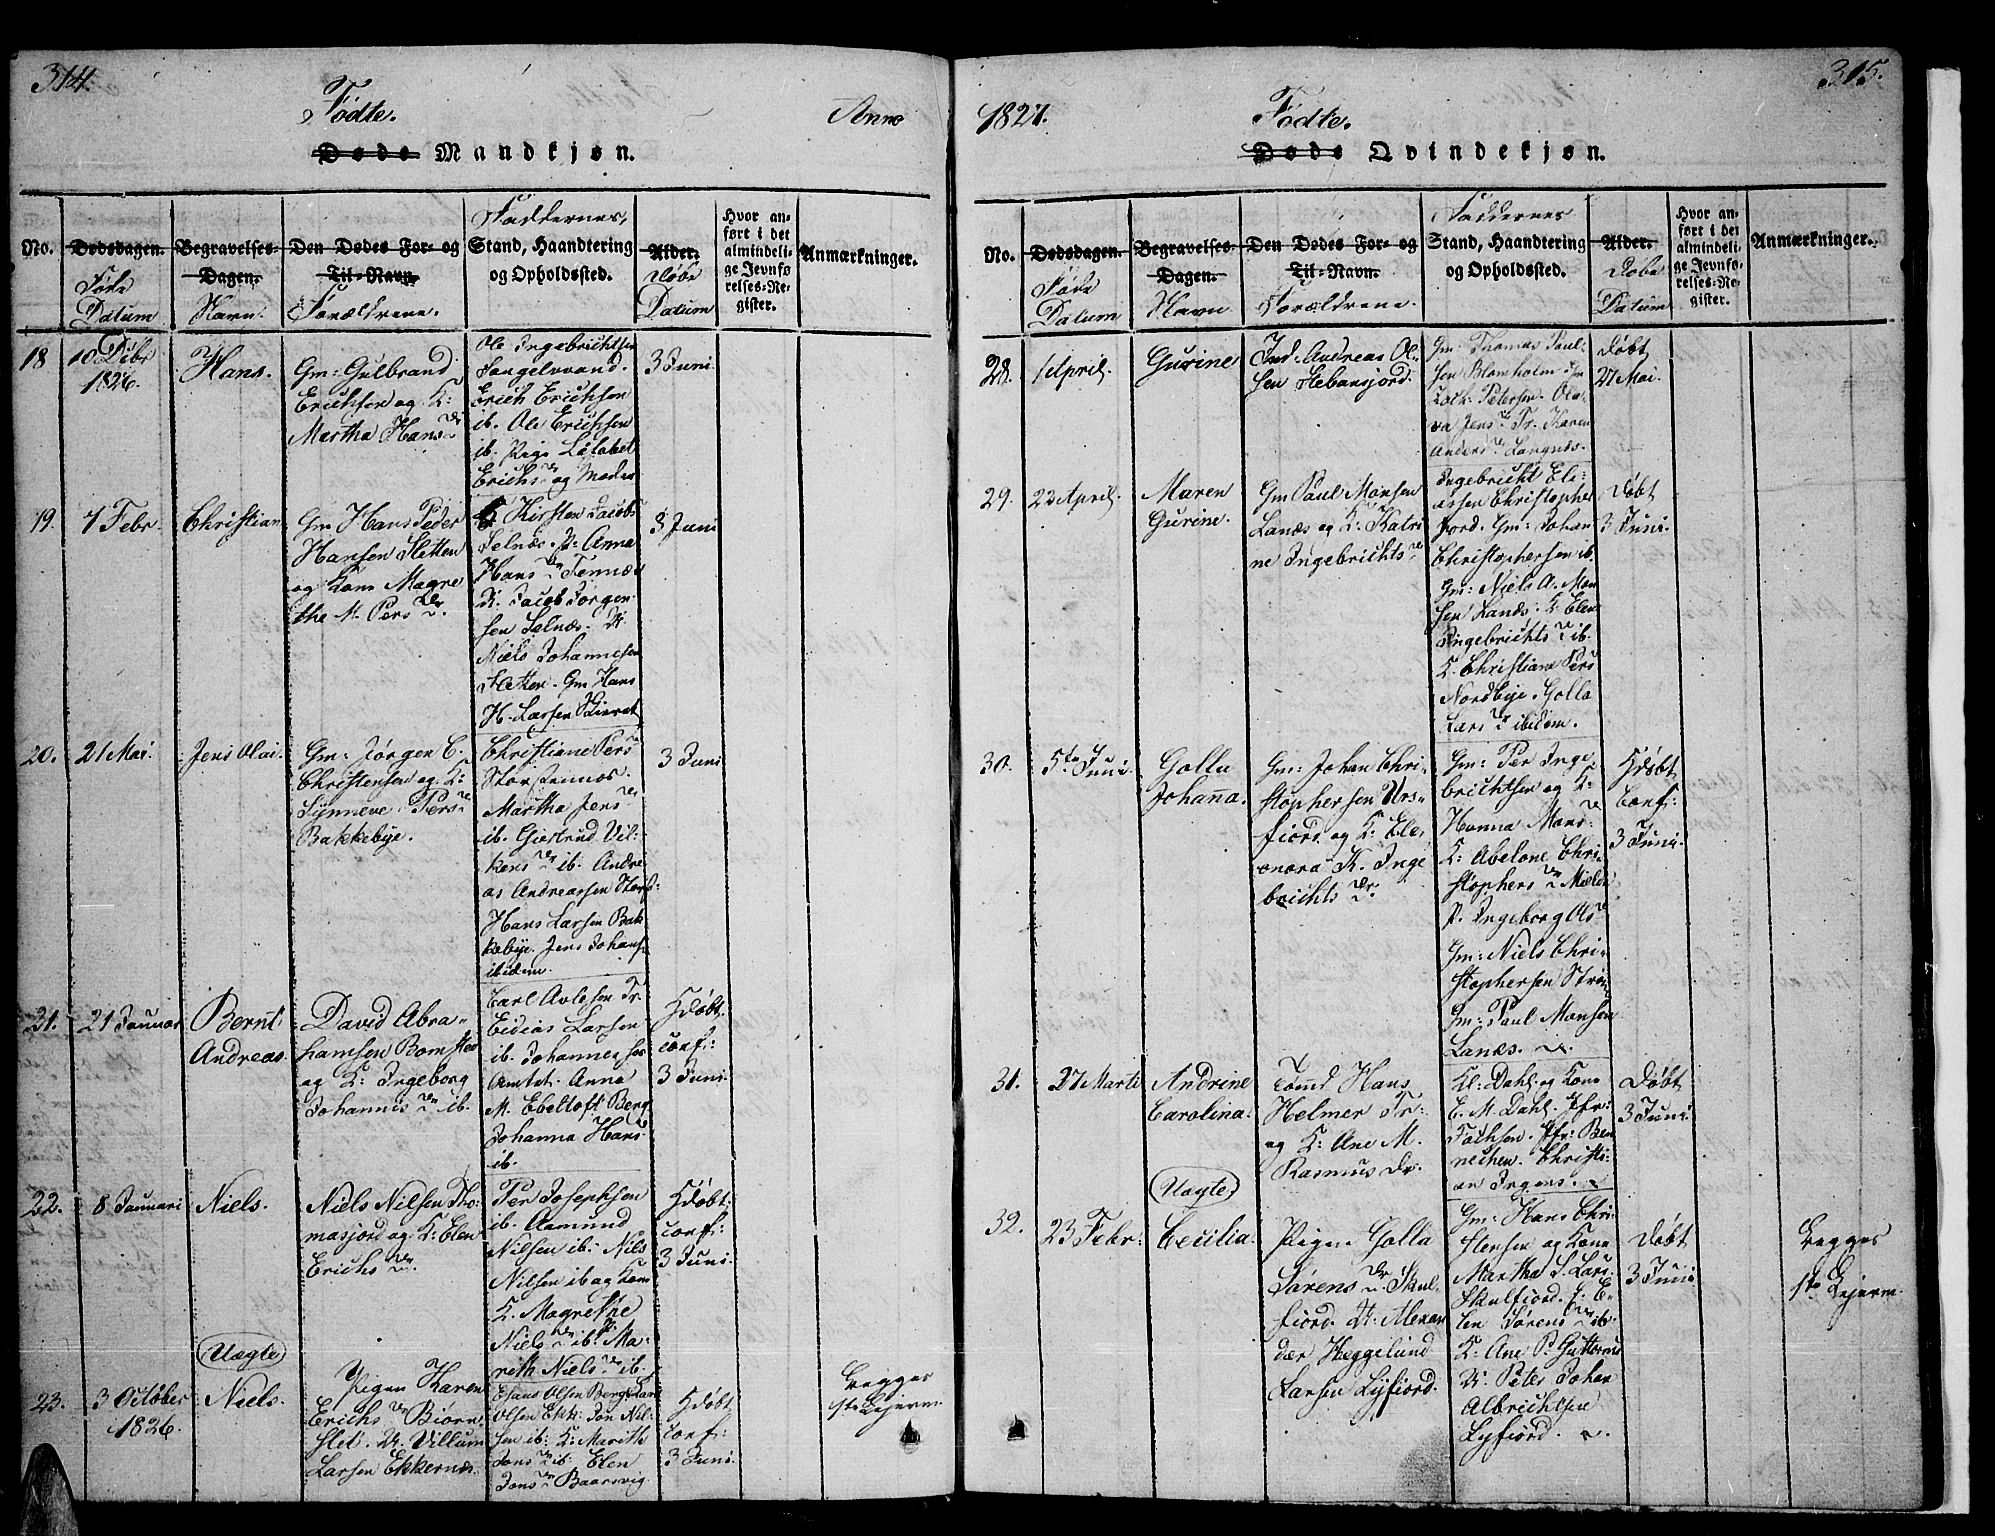 314.
Fødte.
Anno
Døde Mandkjøn.
No.
Dødsdagen.
Føde
Datum
Begravelses-
Dagen.
Navn.
Den Dødes For- og
Til-Navn.
Forældrene.
Faddernes,
Stand, Haandtering
og Opholdssted.
Alder.
Døbe
Datum
Hvor an-
ført i det
almindeli-
ge Jevnfø
relses-Re-
gister.
Anmærkninger.
18
10 Dcbr
1826.
Hans.
Gm: Gulbrand
Erichsen og K:
Martha Hans Dr
Ole Ingebrichtsen
Erich Erichsen
ib. Ole Erichsen
ib. Pige
Erichs Dr og Moder
3 Juni.
19.
7 Febr.
Christian
Gm Hans Peder
Hansen Sletten
og Kone Magre
the M. Pers Dr.
Kirsten Jacobs
Selnæs. P: Anna
Hans Dr Tennæs
K. Jacob Jørgen-
sen Selnæs. U:
Niels Johannesen
Sletten. Gm Hans
H. Larsen
3 Juni
20.
21 Mai.
Jens Olai.
Gm: Jørgen C.
Christensen og K:
Synneve Pers Dr
Bakkebye.
Christiane Pers
Storstennæs.
Martha Jens Dr
ib. Gjertrud Vil-
kens Dr ib. Andre
as Andreassen
Hans Larsen Bak
kebye. Jens Johans
ibidem.
3 Juni
21.
21 Januar
Bernt
Andreas.
David Abra-
hamsen Bomstad
og K: Ingeborg
Johannis Dr ib.
Carl Tr.
Eidias Larsen
ib. Johannes
Amtet. Anna
M. Ebeltoft Berg
Johanna Hans
ib.
Hdøbt
conf:
3 Juni.
22.
8 Januari
Niels.
Niels Nilsen Tho-
masjord og K: Elen
Erichs Dr.
Per Josephsen
ib. Aamund
Nilsen ib. Nils
Nilsen ib og Kone
K. Magrethe
Niels Dr ib. P. Ma-
ritha Niels Dr ib.
Hdøbt:
conf:
3 Juni.
Uægte
23.
3 October
1826.
Niels.
Pigen Karen
Erichs Dr Biørn-
slet. U: Villum
Larsen Ekkernæs.
Hans Olsen Berg. Lars
Olsen Ekk: Jon Nil-
sen ib: K: Marith
Jons Dr ib: Elen
Jons Dr Baarsvig
Hdøbt
conf:
3 Juni.
Begges
1ste Lejerm.
315.
1827.
Fødte.
Døde Qvindekjøn.
No.
Dødsdagen.
Føde
Datum
Begravelses-
Dagen.
Navn
Den Dødes For- og
Til-Navn.
Forældrene.
Faddernes
Stand, Haandtering
og Opholdssted.
Alder.
Døbe
Datum
Hvor an-
ført i det
almindeli-
ge Jevnfø-
relses-Re-
gister.
Anmærkninger.
28.
1 April.
Gurine
Ind: Andreas Ol-
sen
Gm: Thomas Paul-
sen Blomholm Gm
Zach: Petersen. Ola-
va Jens Dr Tr. Karen
Anders Dr Langnæs.
Døbt
27 Mai.
29.
22 April.
Maren
Gurine.
Gm Paul Monsen
Lanæs og K: Katri
ne Ingebrichts Dr
Ingebricht Eli-
assen Christopher
jord. Gm: Johan
Christophersen ib.
Gm: Niels A. Mon
sen Lanæs. K: Elen
Ingebrichts Dr ib.
K. Christiane Pers
Nordbye. Golla
Lars Dr ibidem.
Døbt
3 Juni.
30.
5te Juni.
Golla
Johanna.
Gm: Johan Chri-
stophersen Urs-
fjord og K: Ele,
onora K. Inge
brichts Dr.
Gm: Per Inge
brichtsen og K:
Hanna Mons Dr
K: Abelone Chri-
stophers Dr
P. Ingeborg Ols Dr
Gm: Niels Chri-
stophersen
Gm: Paul Monsen
Lanæs.
Hdøbt
Conf:
3 Juni.
31.
27 Marti
Andrine
Carolina.
Hans
Helmer Tr:
og K: Ane M.
Rasmus Dr.
Kl: Dahl og Kone
C. M. Dahl. Jfr:
Fochsen. Jfr: Ben
nechen. Christi-
an Irgens.
Døbt
3 Juni
Uægte
32.
23 Febr:
Cecilia.
Pigen Golla
Sørens Dr Skul-
fiord. U: Alexan
der Heggelund
Larsen Lyfiord.
Gm: Hans Chri-
stensen og Kone
Martha S. Lars
Skulfiord. P. E-
len Sørens Dr ib.
K: Ane P. Guttorms
U: Peter Johan
Albrichtsen
Lyfiord.
Døbt
3 Juni
Begges
1ste Lejerm.